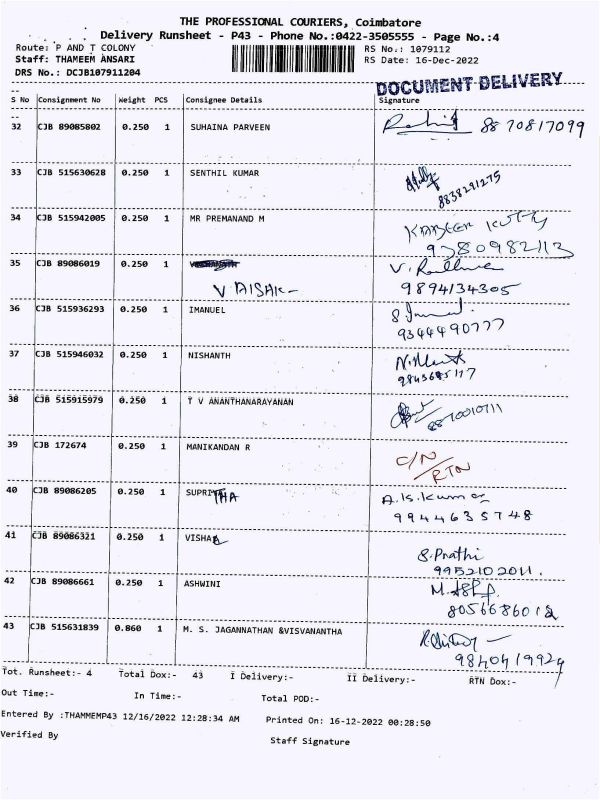 THE PROFESSIONAL COURIERS, Coimbatore
Delivery Runsheet - P43 - Phone No.:0422-3505555 - Page No.:4
Route: P AND T COLONY RS No.: 1079112
Staff: THAMEEM ANSARI RS Date: 16-Dec-2022
DRS No.: DCJB107911204
DOCUMENT DELIVERY
S No Consignment No Weight PCS Consignee Details Signature
32 CJB 89085802 0.250 1 SUHAINA PARVEEN 8870817099
33 CJB 515630628 0.250 1 SENTHIL KUMAR
8838291275
34 CJB 515942005 0.250 1 MR PREMANAND M KABEER KUTTY
9380982113
35 CJB 89086019 0.250 1 V. Radhua
VAISAK- 9894134305
36 CJB 515936293 0.250 1 IMANUEL
9344490777
37 CJB 515946032 0.250 1 NISHANTH
38 CJB 515915979 0.250 1 T V ANANTHANARAYANAN
39 CJB 172674 0.250 1 MANIKANDAN R C/N
RTN
40 CJB 89086205 0.250 1 SUPRITHA A.K.Kumar
9944635748
41 CJB 89086321 0.250 1 VISHAL
S.Prathi
9952102011.
42 CJB 89086661 0.250 1 ASHWINI
8056686012
43 CJB 515631839 0.860 1 M. S. JAGANNATHAN &VISVANANTHA
9840419924
Tot. Runsheet:- 4 Total Dox:- 43 I Delivery:- II Delivery:- RTN Dox:-
Out Time:- In Time:- Total POD:-
Entered By :THAMMEMP43 12/16/2022 12:28:34 AM Printed On: 16-12-2022 00:28:50
Verified By Staff Signature